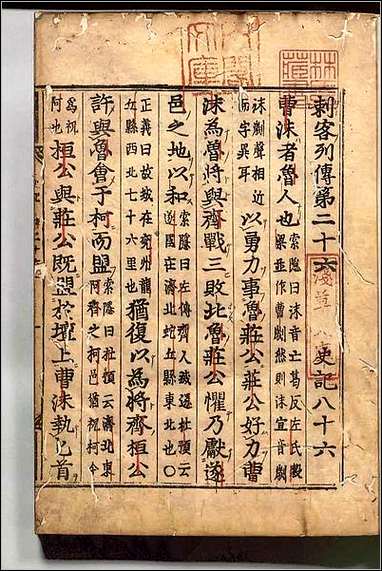 刺客列傳第二十六 史記八十六
曹沫者魯人也 索隱曰沫音亡葛反左氏穀
梁並作曹劌然則沫宜音劌
沫劌聲相近
而字異耳 以勇力事魯莊公莊公好力曹
沫為魯將與齊戰三敗北魯莊公懼乃獻遂
邑之地以和 索隱曰左傳齊人滅遂杜預云
遂國在濟北蛇丘縣東北也〇
正義曰故城在兗州龍
丘縣西北七十六里也 猶復以為將齊桓公
許與魯會于柯而盟 索隱曰杜預云濟北東
阿齊之柯邑猶祝柯今
為祝
阿也 桓公與莊公既盟於壇上曹沫執匕首
林氏
藏書
淺草
文庫